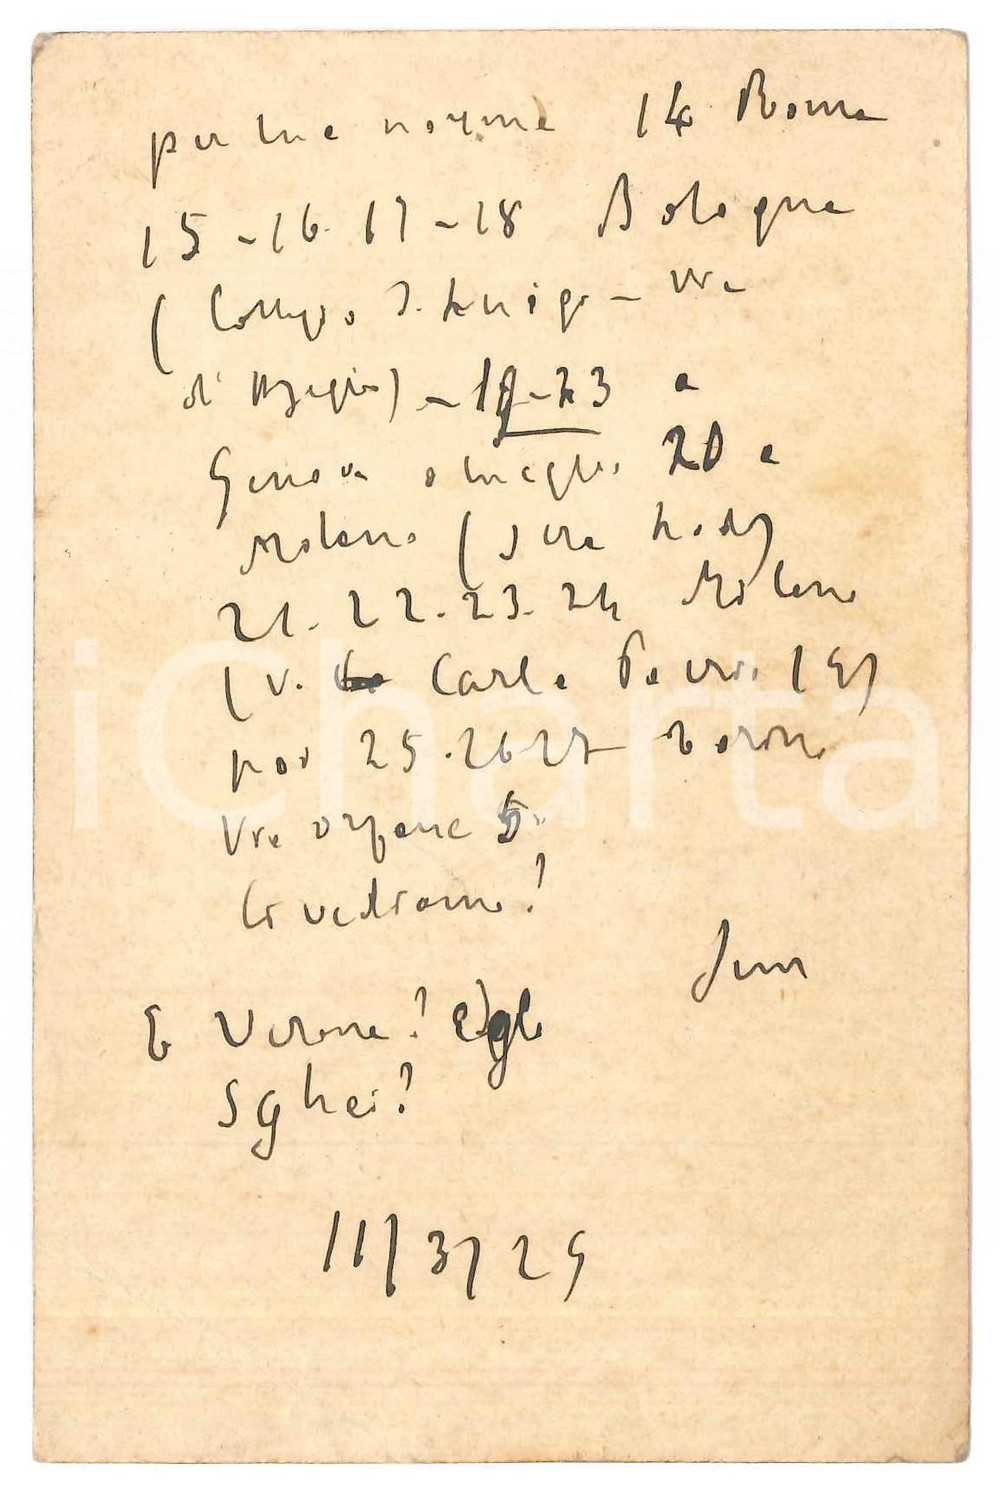 per tua norma 14 Roma
15-16-17-18 Bologna
(Collegio S. Luigi - Via
d'Azeglio) - 19-23 a
Genova o meglio 20 a
Milano (sera tardi)
21. 22. 23. 24 Milano
(v. Carlo 19)
poi 25. 26 27 Torino
Via Orfane 5.
Ci vedremo?
E Verona? Egli
Sghei?
11/3/29
iCharta